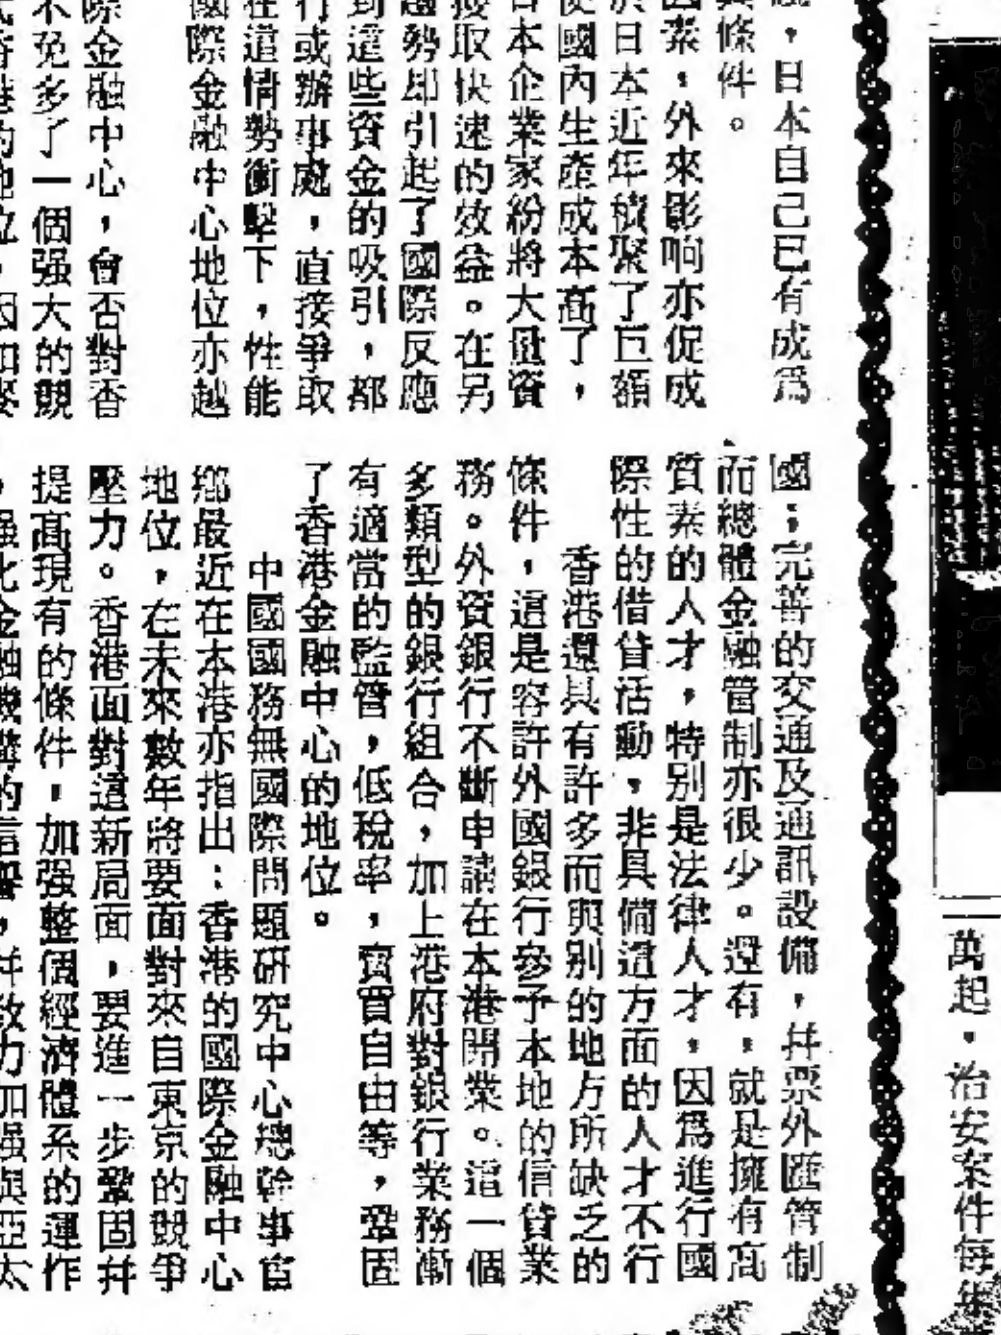 ，日本自己已有成爲
條件。
素，外來影响亦促成
於日本近年積聚了巨額
從國內生產成本高了，
日本企業家紛將大量資
接取快速的效益。在另
趨勢却引起了國際反應
到這些資金的吸引，都
行或辦事處，直接爭取
在這情勢衝擊下，性能
國際金融中心地位亦越
際金融中心，會否對香
不免多了一個强大的競
國；完善的交通及通訊設備，幷票外匯管制
而總體金融管制亦很少。還有，就是擁有高
質素的人才，特别是法律人才，因爲進行國
際性的借貸活動，非具備這方面的人才不行
香港還具有許多而與别的地方所缺乏的
條件，這是容許外國銀行參予本地的信貸業
務。外資銀行不斷申請在本港開業。這一個
多類型的銀行組合，加上港府對銀行業務漸
有適當的監管，低稅率，寳買自由等，鞏固
了香港金融中心的地位。
中國國務無國際問題研究中心總幹事宦
鄉最近在本港亦指出：香港的國際金融中心
地位，在未來數年將要面對來自東京的競爭
壓力。香港面對這新局面，要進一步鞏固幷
提高現有的條件，加强整個經濟體系的運作
，强化金融機構的信譽，幷致力加强與亞太
萬起，治安案件每年